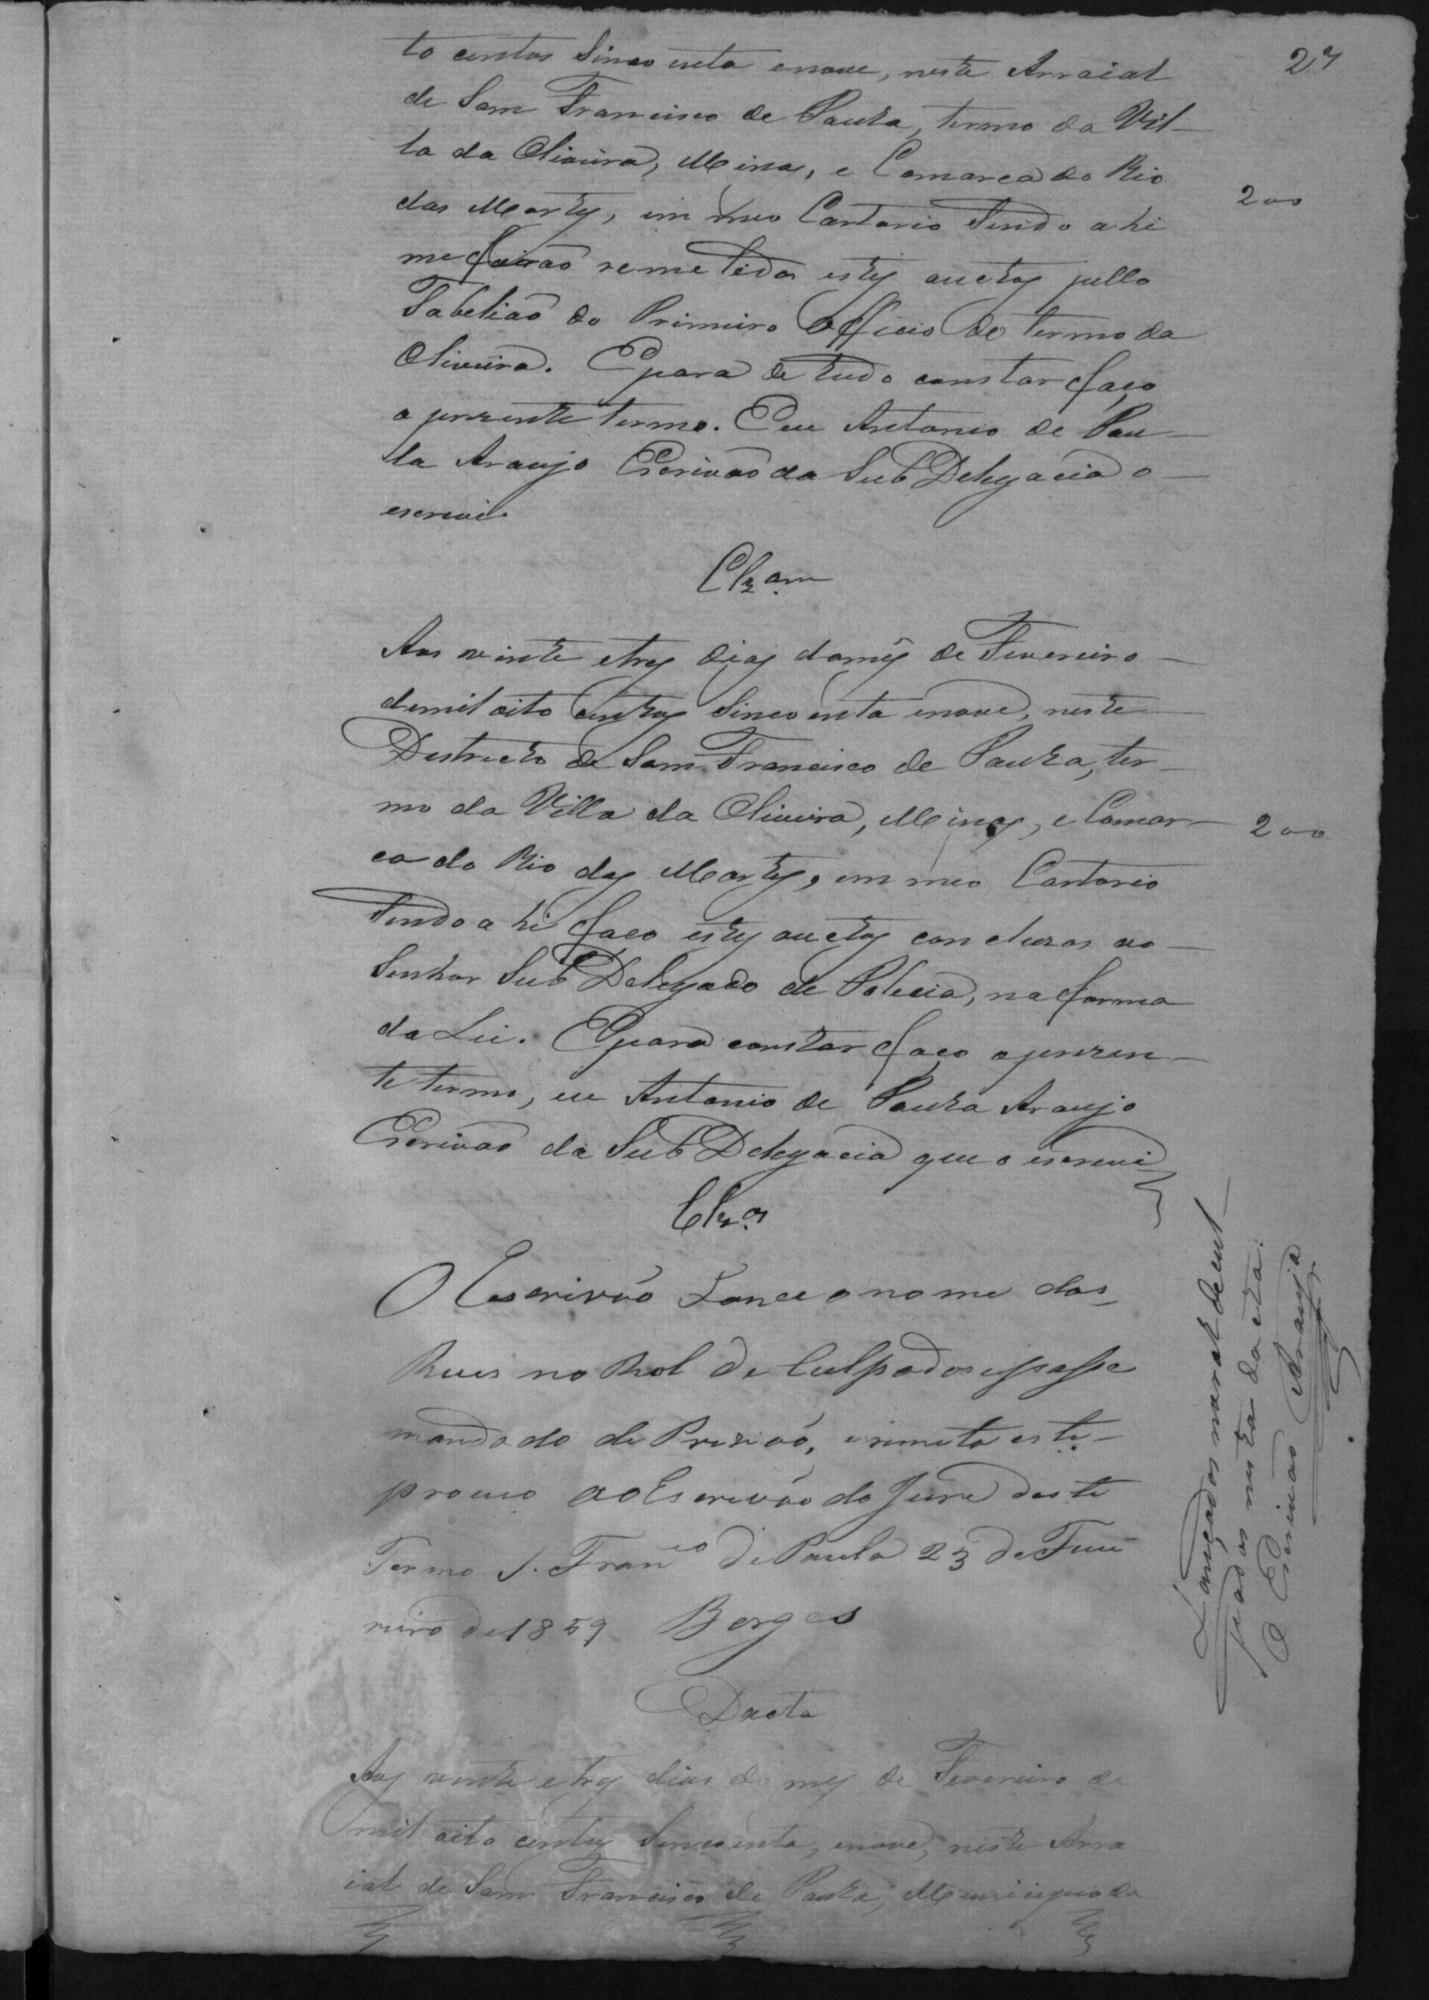 27
to centos Sincoenta enove, neste Arraial
de Sam Francisco de Paula, termo da Vil-
la da Oliveira, Minas, e Comarca do Rio
das Mortes, em meo Cartorio Sendo ahi
200
me forão remetidos estes auctos pello
Tabelião do Primeiro Officio do termo da
Oliveira. E para de tudo constar faço
o prezente termo. Eu Antonio de Pau-
la Araujo Escrivão da Sub Delegacia o
escrevi.
Clzam
Aos vinte e tres dias do mes de Fevereiro
de mil oito centos Sincoenta enove, neste
Destricto de Sam Francisco de Paula, ter-
mo da Villa da Oliveira, Minas, e Comar-
200
ca do Rio das Mortes, em meo Cartorio
Sendo ahi faco estes auctos concluzos ao
Senhor Sub Delegado de Policia, na forma
da Lei. E para constar faço o prezen-
te termo, eu Antonio de Paula Araujo
Escrivão da Sub Delegacia que o escrevi
Clzos
O Escrivão Lance o nome dos
Reus no Rol de Culpados e passe
mandado de Prizão, e remeta este
proceco ao Escrivão do Jure deste
Termo S. Franco de Paula 23 de Feve
reiro de 1859 Borges
Dacta
Aos vinte e tres dias do mes de Fevereiro de
mil oito centos Sincoenta, enove, neste Arra
ial de Sam Francisco de Paula, Municipio da
Lançados no rol de cul-
pados nesta dacta.
O Escrivão Araujo